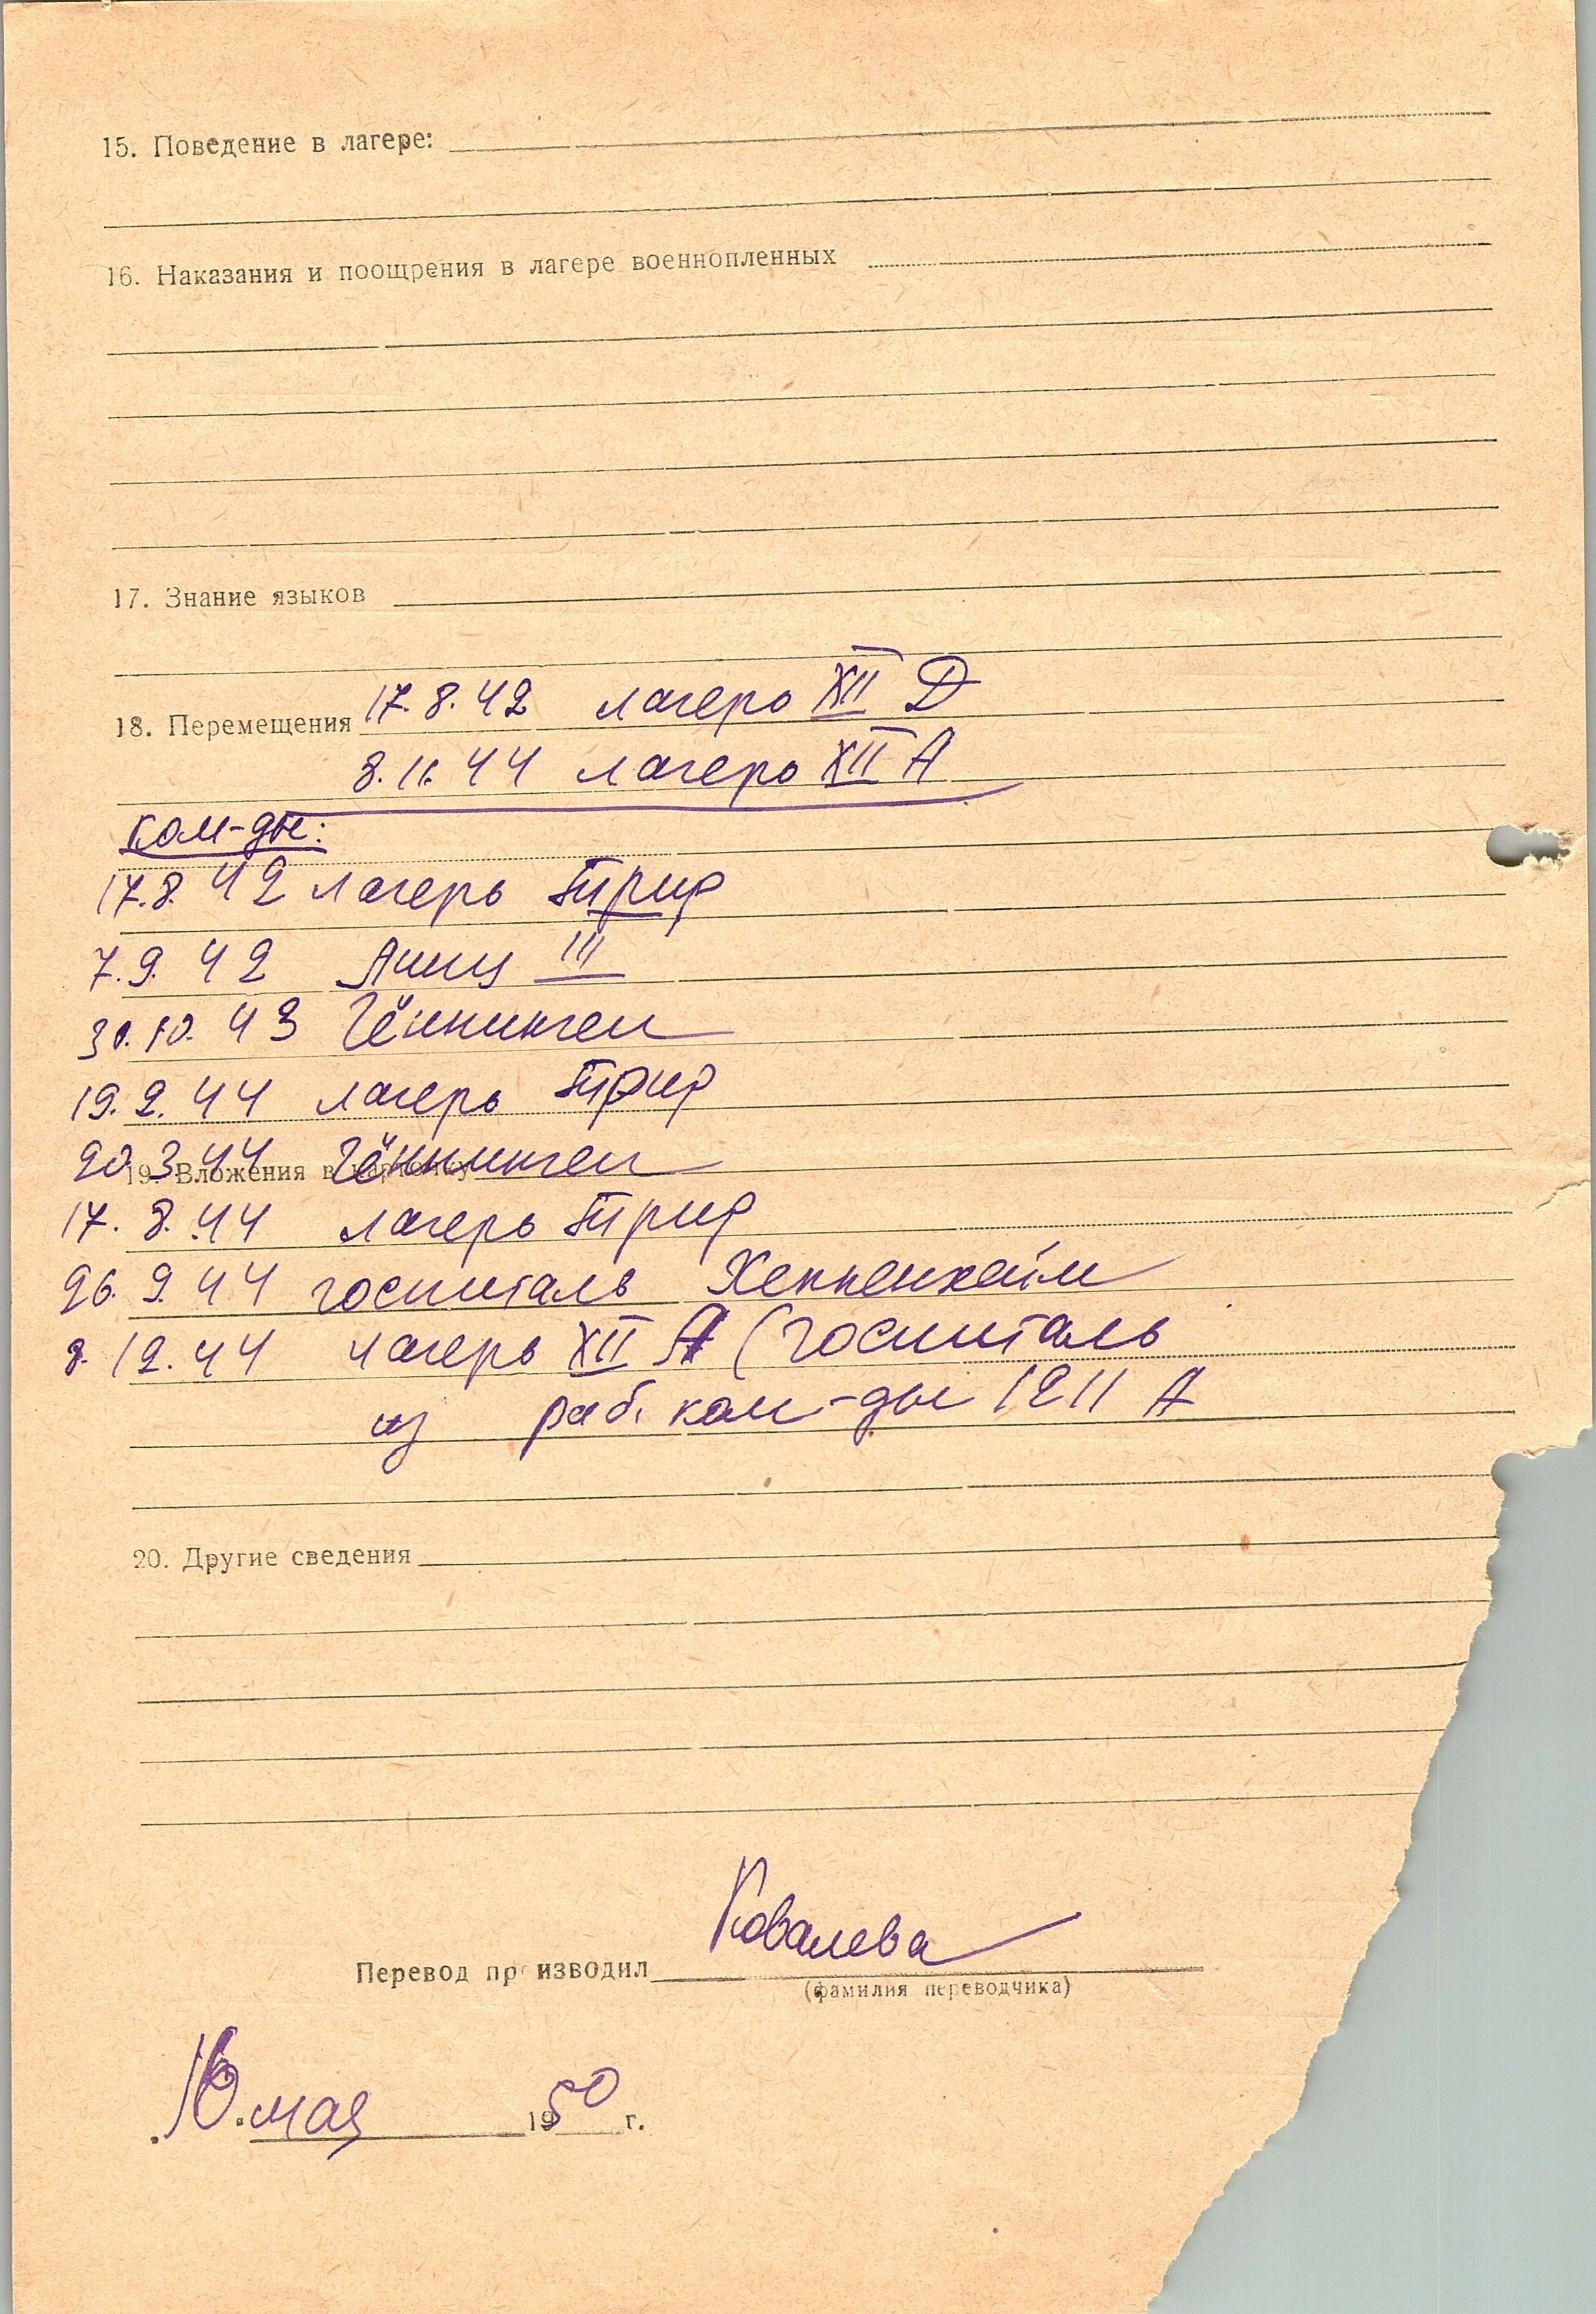 15. Поведение в лагере:
16. Наказания и поощрения в лагере военнопленных
17. Знание языков
18. Перемещения 17.8.42 лагерь XII Д
8.11.44 лагерь XII А
ком-ды:
17.8.42 лагерь Трир
7.9.42 III
30.10.43 Гённинген
19.2.44 лагерь Трир
20.3.44 Гённинген
19. Вложения в карточку
17.8.44 лагерь Трир
26.9.44 госпиталь Хеппенхейм
8.12.44 лагерь XII А (госпиталь
из раб. ком-ды 1211 А
20. Другие сведения
Перевод производил Ковалева
(фамилия переводчика)
мая 1950 г.